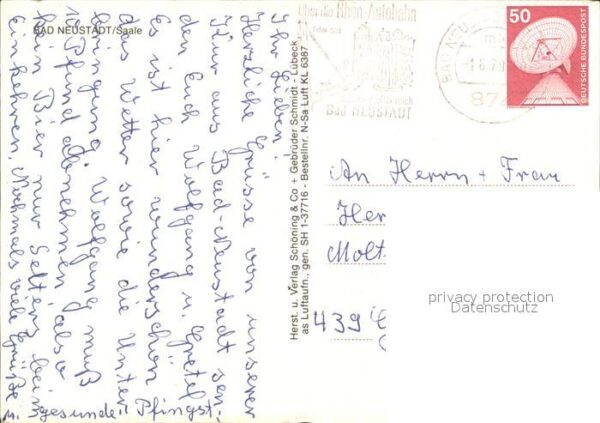 BAD NEUSTADT/Saale
Ihr Lieben!
Herzliche Grüsse von unserer
Kur aus Bad-Neustadt sen-
den Euch Wolfgang u. Gretel
Es ist hier wunderschön
das Wetter sowie die Unter
bringung. Wolfgang muß
10 Pfund abnehmen also
kein Bier nur Selters beim
Einkehren. Nochmals viele Grüße
u. "gesunde" Pfingst.
Herst. u. Verlag Schöning & Co + Gebrüder Schmidt - Lübeck
as Luftaufn., gen. SH 1-37716 - Bestellnr. N-Sa Luft KL 6387
Über die Rhön-Autobahn
nach
Bad NEUSTADT
BAD NEUS
-1.6.79
874
50
DEUTSCHE BUNDESPOST
An Herrn + Frau
Her
Molt
439
privacy protection
Datenschutz